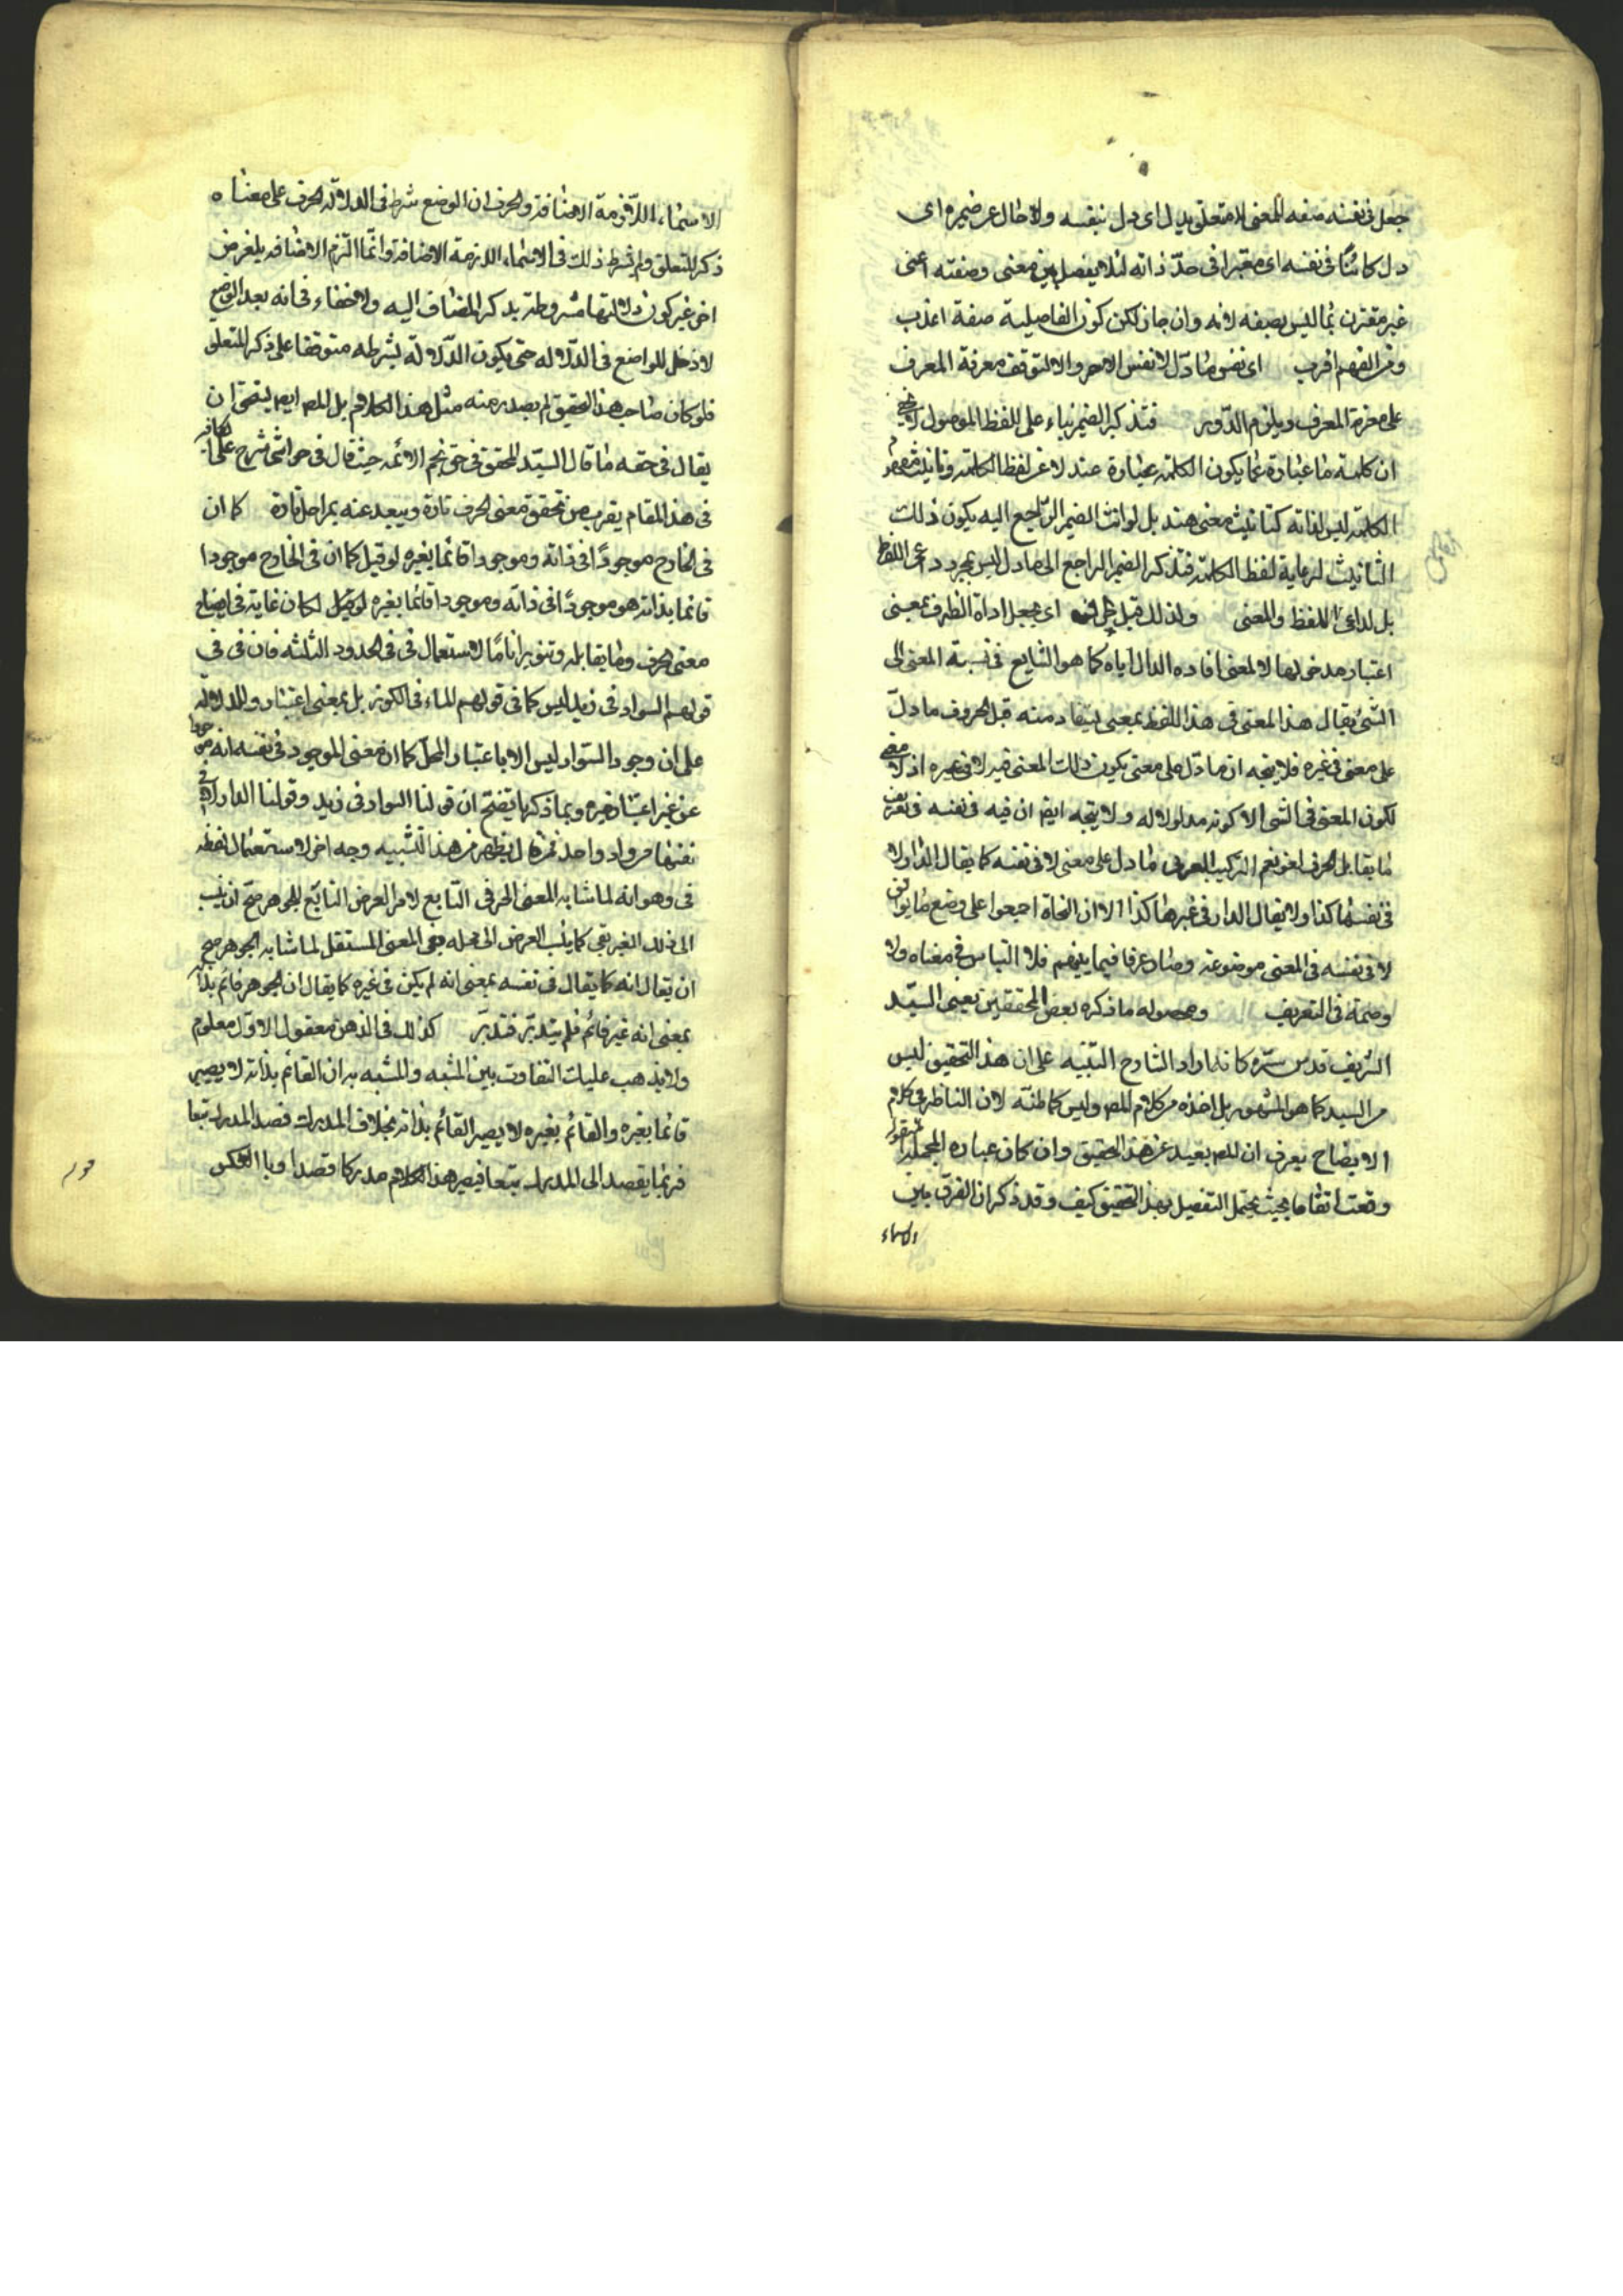 جعل فى نفسه صفه للمعنى لا متعلق بدل اى دل بنفسه ولا حال عن ضميره اى
دل كائنا فى نفسه اى معتبرا فى حدّ ذاته لئلا يفصل بين معنى وصفته اعنى
غير مقترن بما ليس بصفه لانه وان جاز لكن كون الفاصلية صفة اعذب
ومن الفهم اقرب اى نفس ما دلّ لا نفس الامر والا لتوقف معرفة المعرف
على معرفة المعرف ويلزم الدّور فتذكير الضمير بناء على اللفظ الموصول
ان كلمة ما عبارة عما يكون الكلمة عبارة عنه لا عن لفظ الكلمة وتانيث
الكلمة ليس لذاته كتانيث معنى هند بل لوانث الضمير الرّاجع اليه يكون ذلك
التانيث لرعاية لفظ الكلمة فتذكير الضمير الراجع الى ما دل ليس بمجرد اللفظ
بل لداعى اللفظ والمعنى ولذلك قيل اى بجعل اداة الظرف بمعنى
اعتبار مدخولها لا لمعنى افاده الدال اياه كما هو الشايع فى نسبة المعنى الى
الشئ يقال هذا المعنى فى هذا اللفظ بمعنى يستفاد منه قيل الحروف ما دلّ
على معنى فى غيره فلا يتجه ان ما دلّ على معنى يكون ذلك المعنى فيه لا فى غيره اذ لا معنى
لكون المعنى فى الشئ الا كونه مدلولا له ولا يتجه ايضا ان فيه فى نفسه فى تعريف
ما يقابل الحرف لغو نعم التركيب العربى ما دل على معنى لا فى نفسه كما يقال الدار لا
فى نفسها كذا ولا يقال الدار فى غيرها كذا الا ان النحاة اجمعوا على وضع
لا فى نفسه فى المعنى موضوعة وصار عرفا فيما بينهم فلا التباس فى معناه ولا
وصمة فى التعريف ومحصوله ما ذكره بعض المحققين يعنى السيّد
الشريف قدس سرّه كانه اراد الشارح التنبيه على ان هذا التحقيق ليس
من السيد كما هو المشهور بل اخذه من كلام المصـ وليس كما ظنّه لان الناظر فى كلام
الايضاح يعرف ان المصـ بعيد عن هذا التحقيق وان كان عباره المجملة
وقعت اتفاقا بحيث يحتمل التفصيل بهذا التحقيق كيف وقد ذكر ان الفرق بين
الاسماء
الاسماء اللّازمة الاضافة والحرف ان الوضع شرط فى الدلالة الحرف على معناه
ذكر المتعلق ولم يشرط ذلك فى الاسماء اللازمة الاضافة وانّما التزم الاضافه لغرض
اخر غير كون دلالتها مشروطة بذكر المضاف اليه ولا خفاء فى انه بعد الوضع
لا دخل للواضع فى الدّلاله حتى يكون الدّلالة بشرطه متوقفا على ذكر المتعلق
فلو كان صاحب هذا التحقيق لم يصدر منه مثل هذا الكلام بل المصـ ايضا يستحق ان
يقال فى حقه ما قال السيّد المحقق فى حق نجم الائمه حيث قال فى حواشى شرح على الكافيه
فى هذا المقام يقرب من تحقق معنى الحرف تارة ويبعد عنه بمراحل تارة كما ان
فى الخارج موجودًا فى ذاته وموجودا قائما بغيره لو قيل كما ان فى الخارج موجودا
قائما بذاته هو موجودًا فى ذاته وموجودا قائما بغيره لكان غاية فى ايضاح
معنى الحرف وما يقابله وتنويرا تامًا لاستعمال فى فى الحدود الثلثه فان فى فى
قولهم السواد فى زيد ليس كما فى قولهم الماء فى الكوز بل بمعنى اعتبار والدلاله
على ان وجود السّواد ليس الا باعتبار المحل كما ان معنى الموجود فى نفسه انه موجود
عن غير اعتبار غيره وبما ذكرنا يتضح ان قولنا السواد فى زيد وقولنا الدار فى
نفسها من واد واحد يظهر من هذا التشبيه وجه اخر لاستعمال لفظه
فى وهو انه لما شابه المعنى الحرفى التابع لامر العرض التابع للجوهر صحّ ان ينسب
الى ذلك الغير بفى كما ينسب العرض الى محله بفى المعنى المستقل لما شابه الجوهر صح
ان يقال انه كما يقال فى نفسه بمعنى انه لم يكن فى غيره كما يقال ان الجوهر قائم بذاته
بمعنى انه غير قائم فلم يتدبّر فتدبّر كذلك فى الذهن معقول الاول معلوم
ولا يذهب عليك التفاوت بين المشبه والمشبه به ان القائم بذاته لا يصير
قائما بغيره والقائم بغيره لا يصير القائم بذاته بخلاف المدرك قصد المدرك تبعا
فربّما يقصد الى المدرك تبعا فيصير هذا الكلام مدركا قصدا وبالعكس